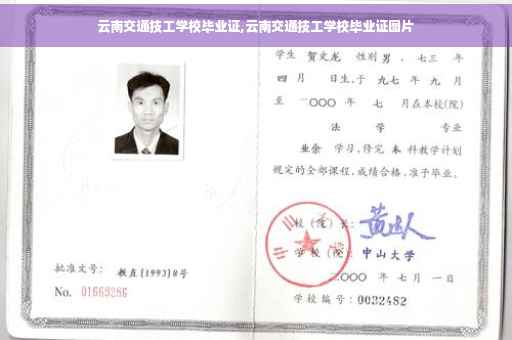 云南交通技工学校毕业证,云南交通技工学校毕业证图片
学生 贺文龙 性别 男 、七三 年
四 月 日生,于 九七 年 九 月
至 二〇〇〇 年 七 月在本校(院)
法 学 专业
业余 学习,修完 本 科教学计划
规定的全部课程,成绩合格,准予毕业。
校(院)长:
学校(院): 中山大学
二〇〇〇 年 七 月 一 日
学校编号: 0032482
批准文号: 教直(1993)8号
No. 01669286